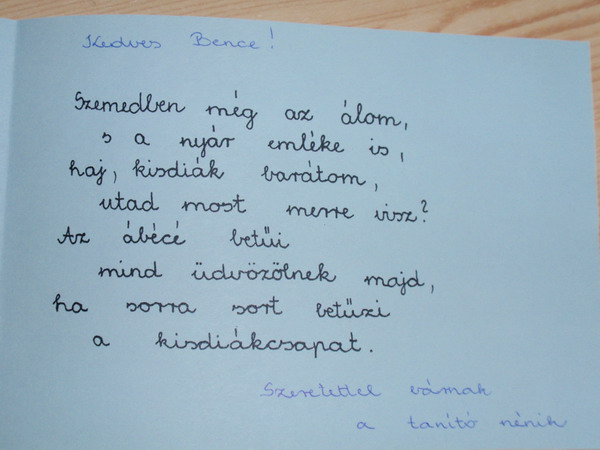 Kedves Bence!
Szemedben még az álom,
s a nyár emléke is,
haj, kisdiák barátom,
utad most merre visz?
Az ábécé betűi
mind üdvözölnek majd,
ha sorra sort betűzi
a kisdiákcsapat.
Szeretettel várnak
a tanító nénik